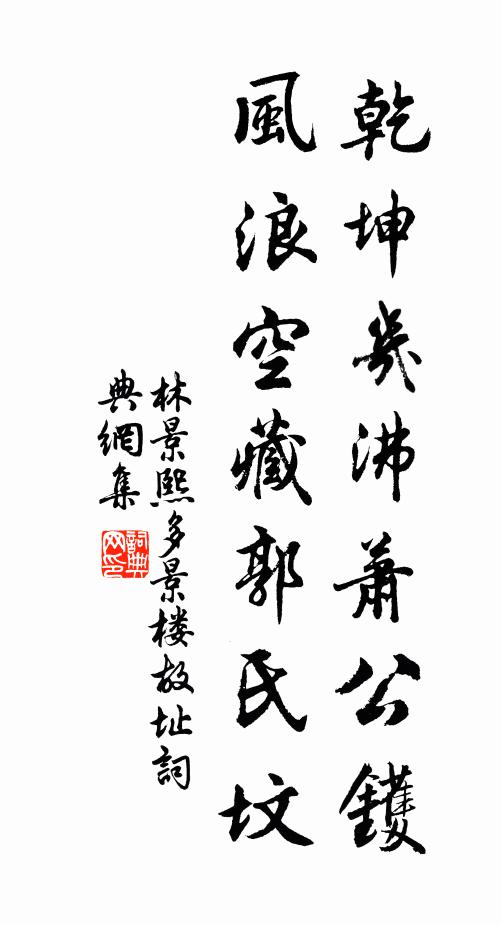 乾坤幾沸蕭公鑊
風浪空藏郭氏坟
林景熙多景楼故址詞
典網集
詞典网印